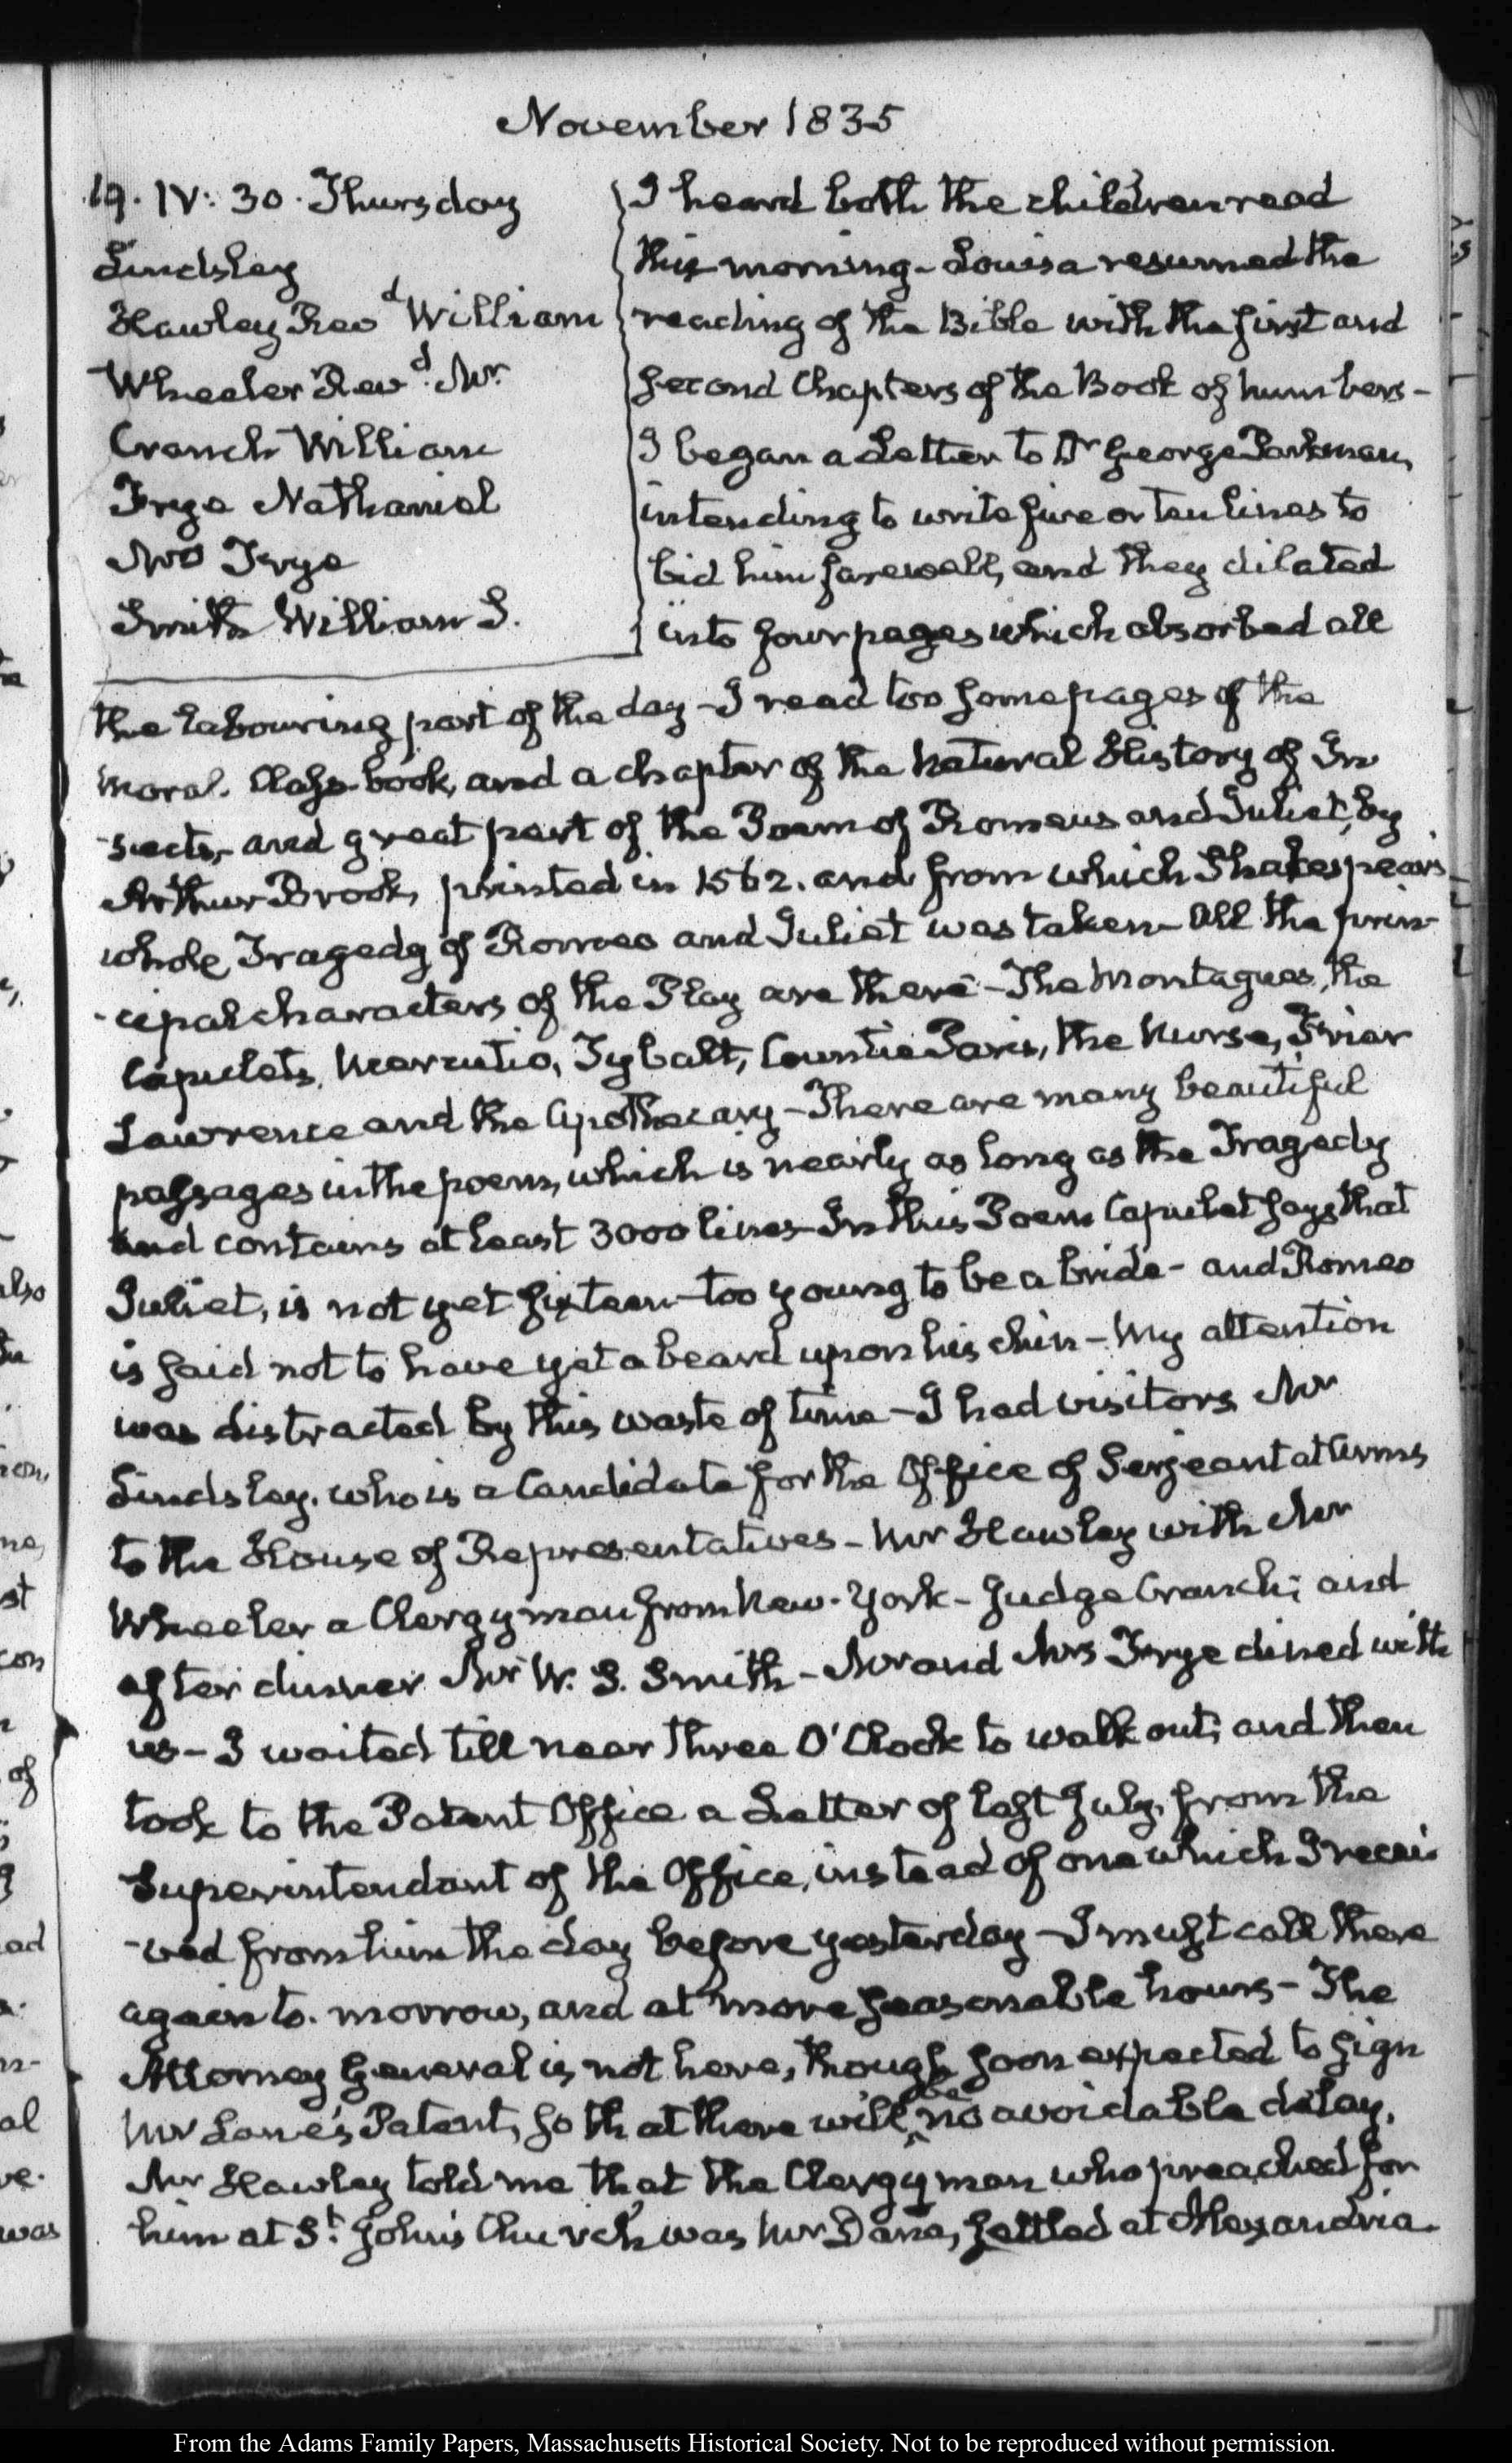 November 1835
19. IV: 30. Thursday
Lindsley
Hawley Revd William
Wheeler Revd. Mr.
Cranch William
Frye Nathaniel
Mrs Frye
Smith William S.
I heard both the children read
this morning - Louisa resumed the
reading of the Bible with the first and
second Chapters of the Book of numbers -
I began a Letter to Dr George Parkman,
intending to write five or ten lines to
bid him farewell, and they dilated
into four pages which absorbed all
the labouring part of the day - I read too some pages of the
moral. Class-book, and a chapter of the Natural History of In
-sects, and great part of the Poem of Romeus and Juliet, by
Arthur Brook, printed in 1562. and from which Shakespear's
whole Tragedy of Romeo and Juliet was taken - All the prin-
-cipal characters of the Play are there - The Montagues, the
Capulets, Mercutio, Tybalt, Countie Paris, the Nurse, Friar
Lawrence and the Apothecary - There are many beautiful
passages in the poem, which is nearly as long as the Tragedy
and contains at least 3000 lines - In this Poem Capulet says that
Juliet, is not yet sixteen - too young to be a bride - and Romeo
is said not to have yet a beard upon his chin - My attention
was distracted by this waste of time - I had visitors Mr
Lindsley. who is a Candidate for the Office of Serjeant at Arms
to the House of Representatives - Mr Hawley with Mr
Wheeler a Clergyman from New-York - Judge Cranch; and
after dinner Mr W. S. Smith - Mr and Mrs Frye dined with
us - I waited till near three O'Clock to walk out; and then
took to the Patent Office a Letter of last July, from the
Superintendant of the Office, instead of one which I recei
-ved from him the day before yesterday - I must call there
again to-morrow, and at more seasonable hours - The
Attorney General is not here, though soon expected to sign
Mr Lane's Patent, so that there will be no avoidable delay.
Mr Hawley told me that the Clergyman who preached for
him at St. John's Church was Mr Dana, settled at Alexandria.
From the Adams Family Papers, Massachusetts Historical Society. Not to be reproduced without permission.